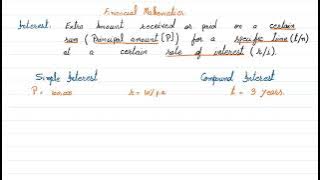 Financial Mathematics
Interest: Extra Amount received or paid on a certain
sum (Principal amount [P]) for a specific time (t/n)
at a certain rate of interest (r/i).
Simple Interest Compound Interest
P = 100,000 r = 10% p.a t = 3 years.